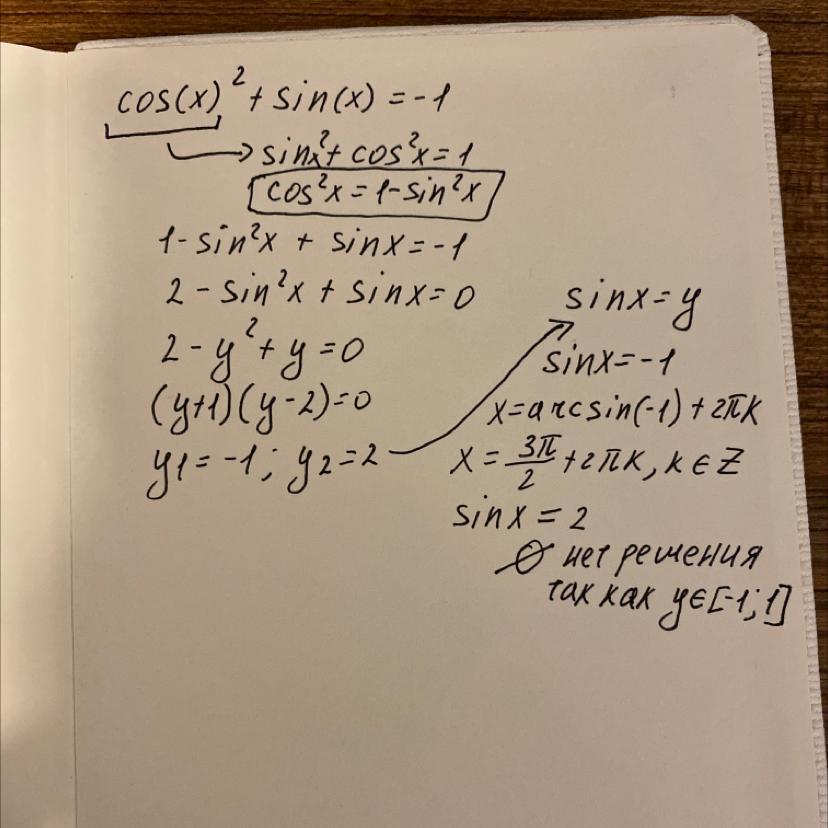 cos(x)² + sin(x) = -1
sinx² + cos²x = 1
cos²x = 1 - sin²x
1 - sin²x + sinx = -1
2 - sin²x + sinx = 0
2 - y² + y = 0
(y+1)(y-2)=0
y1 = -1; y2 = 2
sinx = y
sinx = -1
x = arcsin(-1) + 2πk
x = 3π/2 + 2πk, k ∈ Z
sinx = 2
∅ нет решения
так как y∈[-1;1]